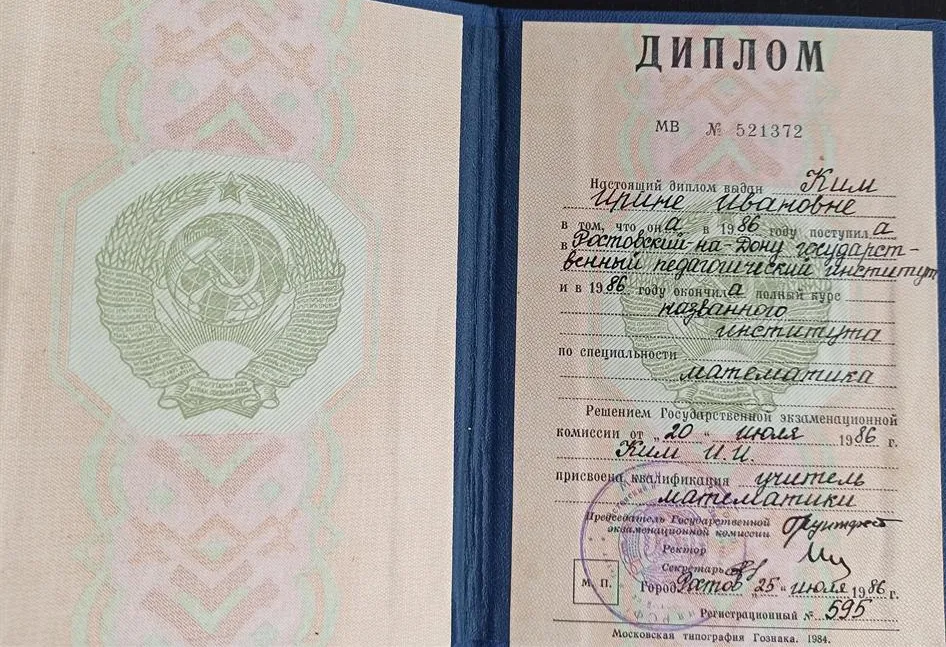 ДИПЛОМ
МВ № 521372
Настоящий диплом выдан Ким
Ирине Ивановне
в том, что он а в 1986 году поступил а
в Ростовский-на-Дону государст-
венный педагогический институт
и в 1986 году окончил а полный курс
названного
института
по специальности
математика
Решением Государственной экзаменационной
комиссии от „20“ июля 1986 г.
Ким И.И.
присвоена квалификация учитель
математики
Председатель Государственной
экзаменационной комиссии
Ректор
Секретарь
М. П.
Город Ростов „25“ июля 1986 г.
Регистрационный № 595
Московская типография Гознака. 1984.